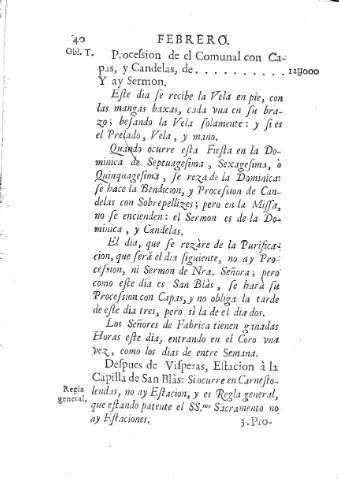 40 FEBRERO.
Gbl. T. Procession de el Comunal con Ca-
pas, y Candelas, de . . . . . . . . . . 12U000
Y ay Sermon.
Este dia se recibe la Vela en pie, con
las mangas baxas, cada vna en su bra-
zo; besando la Vela solamente: y si es
el Prelado, Vela, y mano.
Quando ocurre esta Fiesta en la Do-
minica de Septuagesima, Sexagesima, ò
Quinquagesima, se reza de la Dominica:
se haze la Bendicion, y Procession de Can-
delas con Sobrepellizes; pero en la Missa,
no se encienden: el Sermon es de la Do-
minica, y Candelas.
El dia, que se rezàre de la Purifica-
cion, que serà el dia siguiente, no ay Pro-
cession, ni Sermon de Nra. Señora; pero
como este dia es San Blàs, se harà su
Procession con Capas, y no obliga la tarde
de este dia tres, pero si la de el dia dos.
Los Señores de Fabrica tienen ganadas
Horas este dia, entrando en el Coro vna
vez, como los dias de entre Semana.
Despues de Visperas, Estacion à la
Capilla de San Blàs: Si ocurre en Carnesto-
Regla general. lendas, no ay Estacion, y es Regla general,
que estando patente el SS.mo Sacramento no
ay Estaciones. 3. Pro-